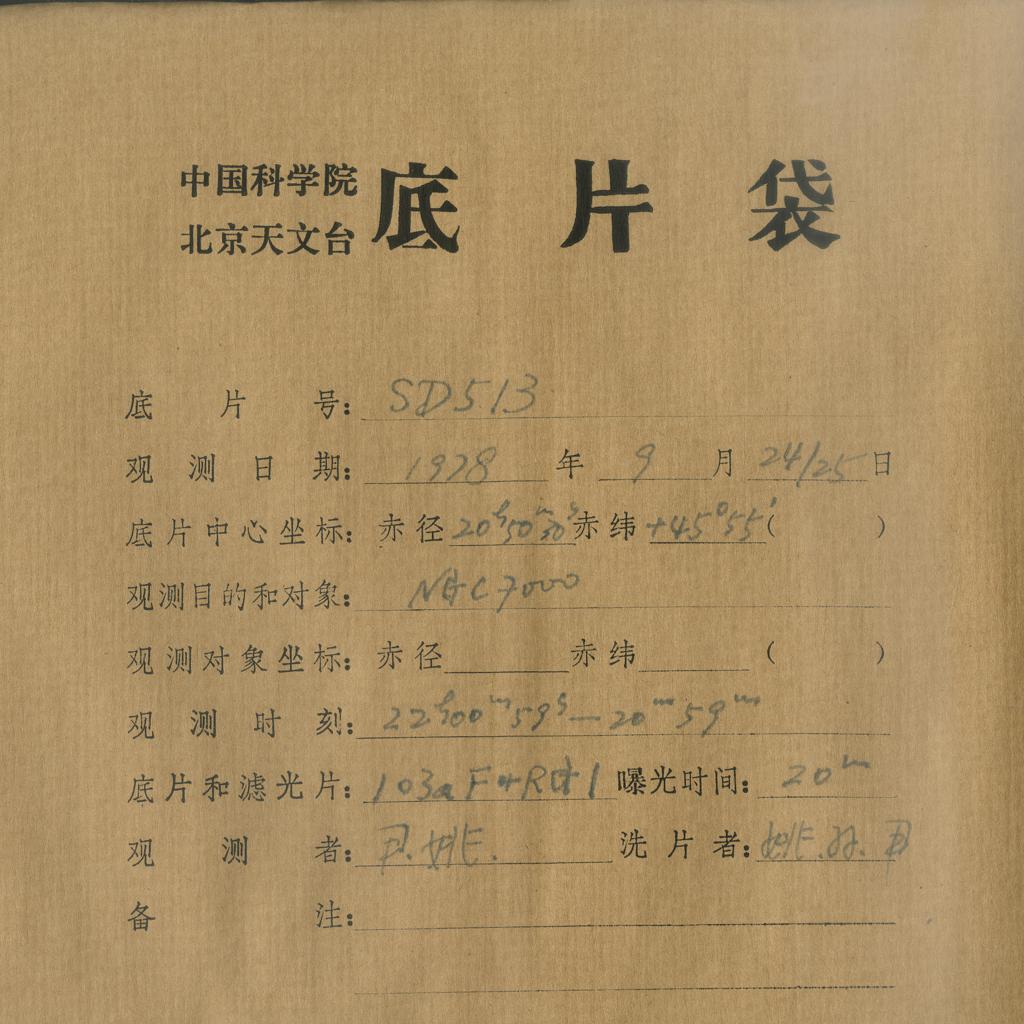 中国科学院
北京天文台 底片袋
底片号: SD513
观测日期: 1978 年 9 月 24/25 日
底片中心坐标: 赤径 20h50m30s 赤纬 +45°55′ ( )
观测目的和对象: NGC7000
观测对象坐标: 赤径 赤纬 ( )
观测时刻: 22h00m59s—20m59m
底片和滤光片: 103aF+RG1 曝光时间: 20m
观测者: 尹.姚. 洗片者: 姚.孙.尹
备注: